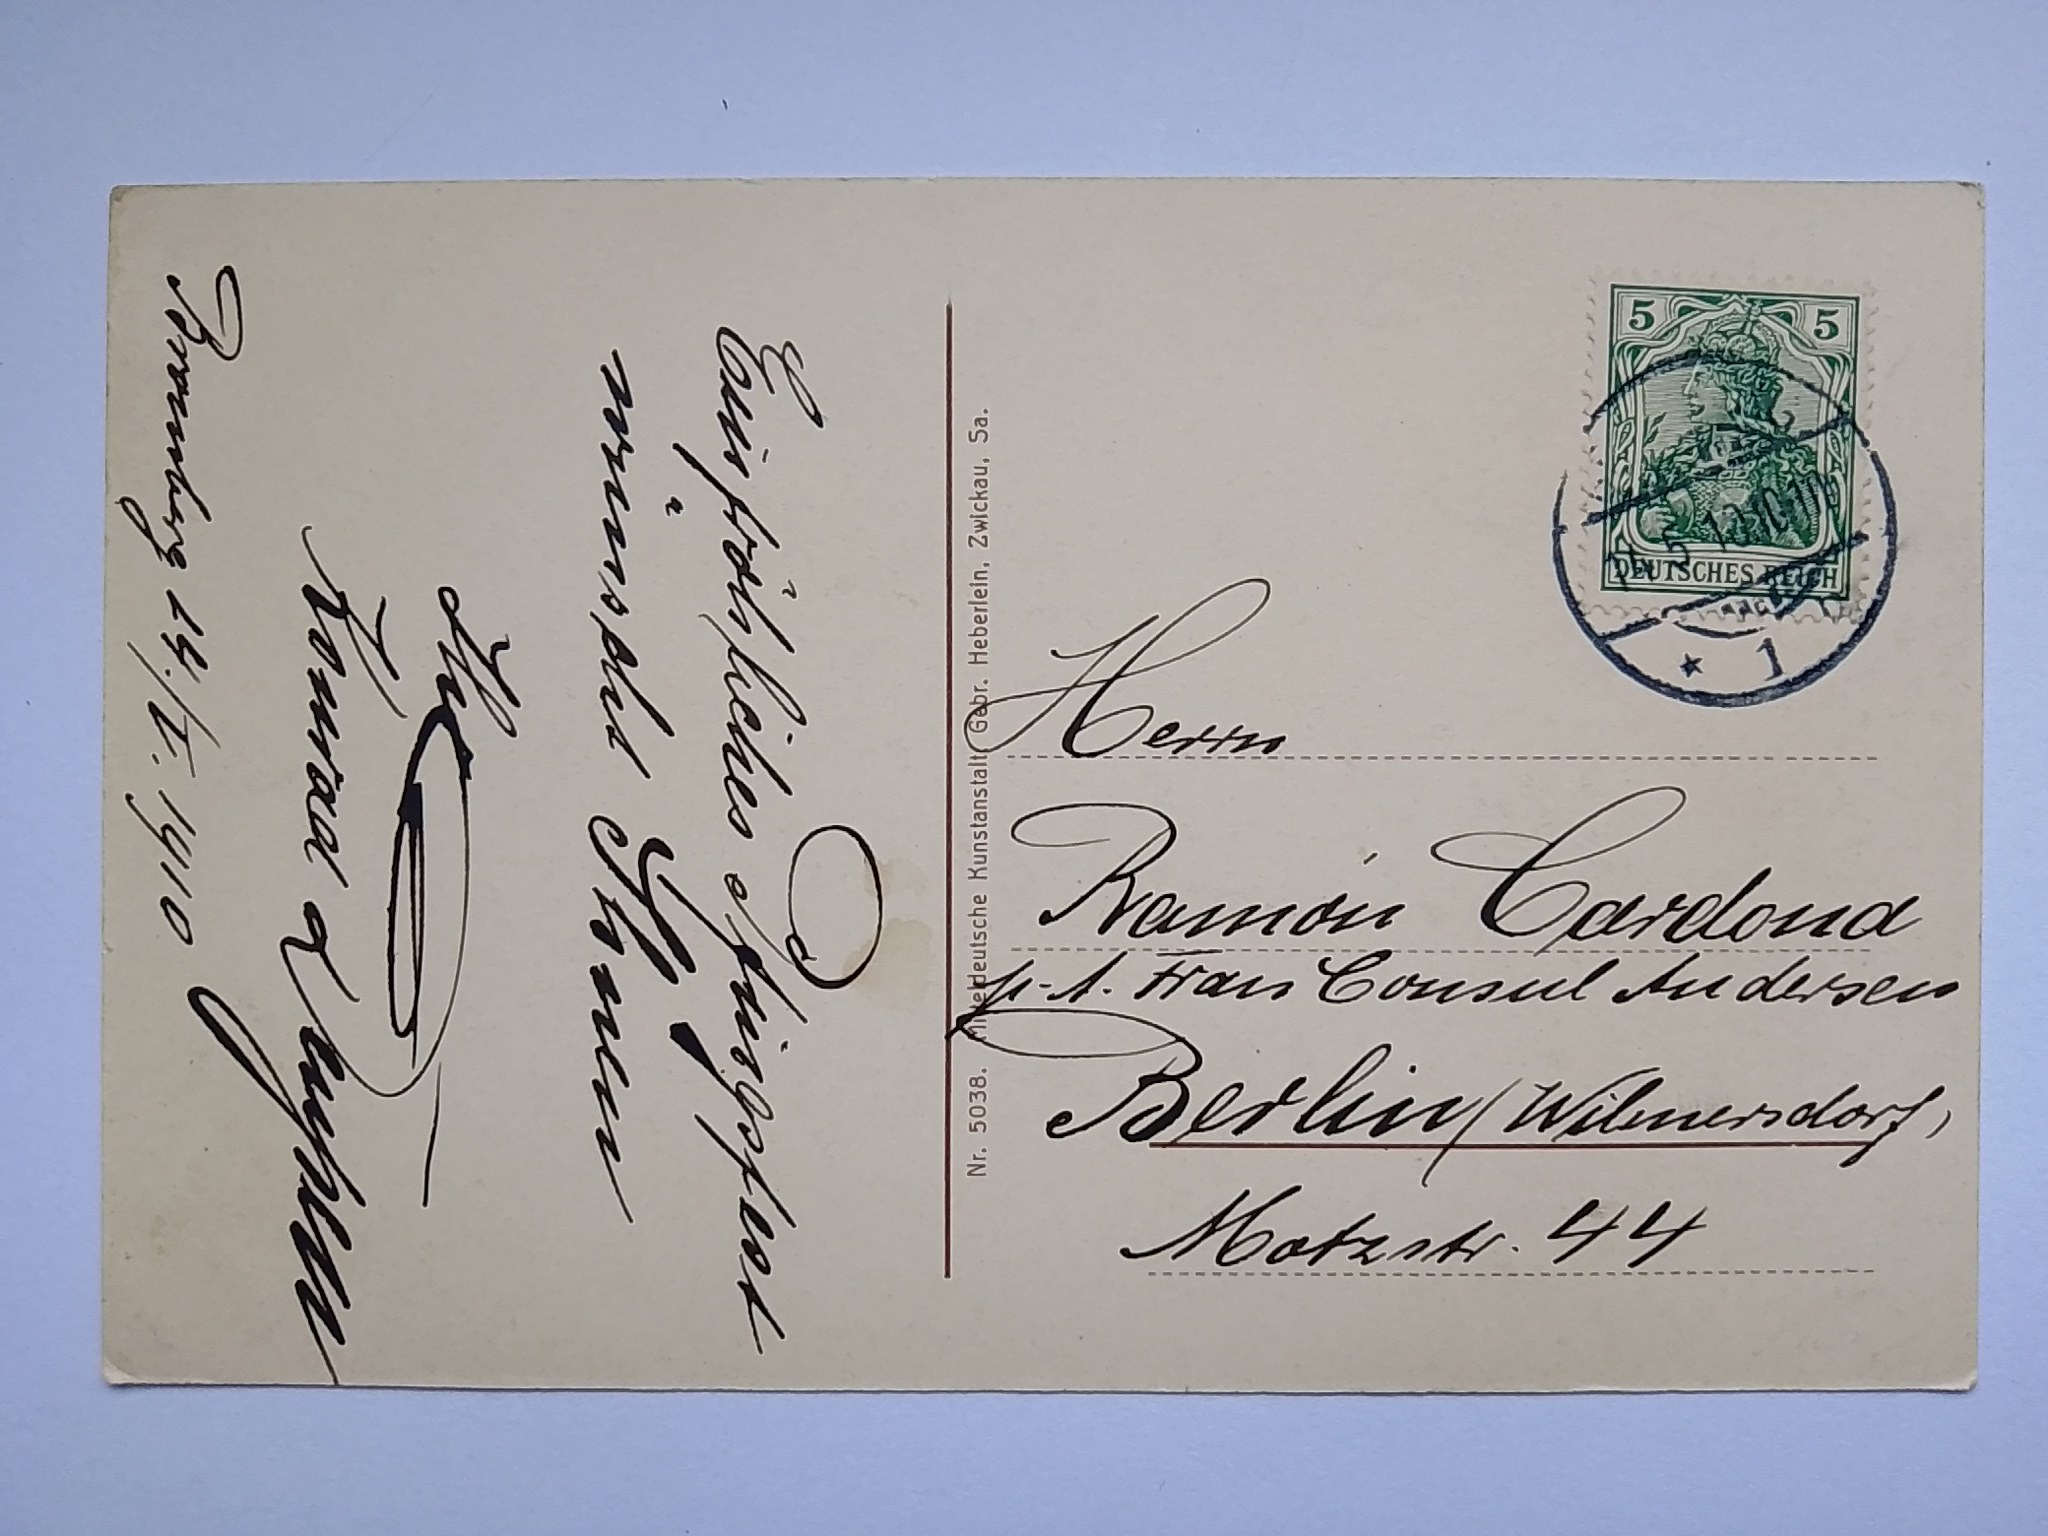 Bromberg 14./V. 1910
Ein fröhliches Pfingstfest
wünscht Ihnen
Ihr
Konrad
Nr. 5038. Mitteldeutsche Kunstanstalt Gebr. Heberlein, Zwickau, Sa.
5 5
DEUTSCHES REICH
14.5.10
* 1
Herrn
Ramón Cardona
p. A. Frau Consul Andersen
Berlin/Wilmersdorf,
Motzstr. 44